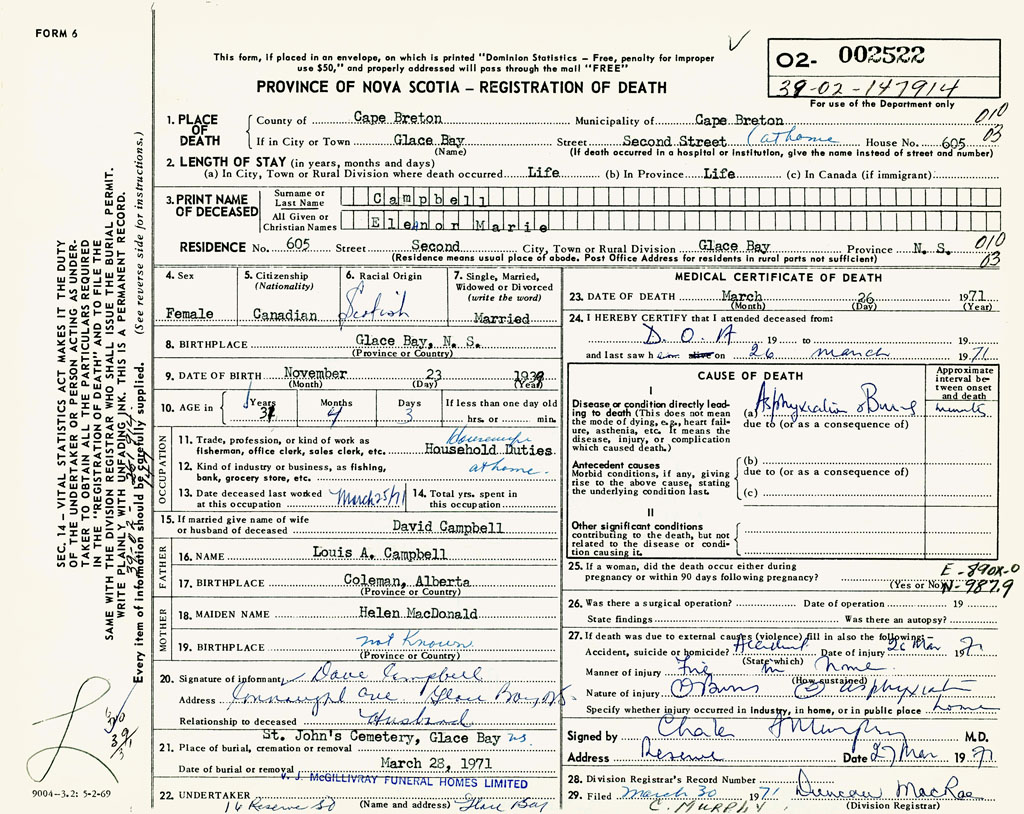 FORM 6
This form, if placed in an envelope, on which is printed "Dominion Statistics – Free, penalty for improper
use $50," and properly addressed will pass through the mail "FREE"
PROVINCE OF NOVA SCOTIA – REGISTRATION OF DEATH
02- 002522
39-02-147914
For use of the Department only
1. PLACE OF DEATH
County of Cape Breton Municipality of Cape Breton 010
If in City or Town Glace Bay Street Second Street (at home House No. 605 03
(Name) (If death occurred in a hospital or institution, give the name instead of street and number)
2. LENGTH OF STAY (in years, months and days)
(a) In City, Town or Rural Division where death occurred Life (b) In Province Life (c) In Canada (if immigrant)
3. PRINT NAME OF DECEASED
Surname or Last Name Campbell
All Given or Christian Names Eleanor Marie
RESIDENCE No. 605 Street Second City, Town or Rural Division Glace Bay Province N. S. 010
(Residence means usual place of abode. Post Office Address for residents in rural parts not sufficient) 03
4. Sex
Female
5. Citizenship
(Nationality)
Canadian
6. Racial Origin
Scotish
7. Single, Married,
Widowed or Divorced
(write the word)
Married
8. BIRTHPLACE Glace Bay, N. S.
(Province or Country)
9. DATE OF BIRTH November 23 1939
(Month) (Day) (Year)
10. AGE in Years Months Days If less than one day old
31 4 3 hrs. or min.
OCCUPATION
11. Trade, profession, or kind of work as Housewife
fisherman, office clerk, sales clerk, etc. Household Duties
12. Kind of industry or business, as fishing, at home.
bank, grocery store, etc.
13. Date deceased last worked March 25/71
at this occupation
14. Total yrs. spent in
this occupation
15. If married give name of wife
or husband of deceased David Campbell
FATHER
16. NAME Louis A. Campbell
17. BIRTHPLACE Coleman, Alberta
(Province or Country)
MOTHER
18. MAIDEN NAME Helen MacDonald
19. BIRTHPLACE not Known
(Province or Country)
20. Signature of informant Dave Campbell
Address Connaught Ave Glace Bay, NS
Relationship to deceased Husband
St. John's Cemetery, Glace Bay NS
21. Place of burial, cremation or removal
Date of burial or removal March 28, 1971
V. J. McGILLIVRAY FUNERAL HOMES LIMITED
22. UNDERTAKER (Name and address) Glace Bay
16 Reserve St
MEDICAL CERTIFICATE OF DEATH
23. DATE OF DEATH March 26 1971
(Month) (Day) (Year)
24. I HEREBY CERTIFY that I attended deceased from:
D. O. A 19 to 19
and last saw h alive on 26 march 1971
CAUSE OF DEATH
Approximate
interval be-
tween onset
and death
I
Disease or condition directly lead-
ing to death (This does not mean
the mode of dying, e.g., heart fail-
ure, asthenia, etc. It means the
disease, injury, or complication
which caused death.)
(a) Asphyxiation & Burns
due to (or as a consequence of)
Antecedent causes
Morbid conditions, if any, giving
rise to the above cause, stating
the underlying condition last.
(b)
due to (or as a consequence of)
(c)
II
Other significant conditions
contributing to the death, but not
related to the disease or condi-
tion causing it.
25. If a woman, did the death occur either during
pregnancy or within 90 days following pregnancy?
(Yes or No)
E-890X-0
N-987.9
26. Was there a surgical operation? Date of operation 19
State findings Was there an autopsy?
27. If death was due to external causes (violence) fill in also the following:
Accident, suicide or homicide? Accident Date of injury 26 Mar 1971
(State which)
Manner of injury Fire in home
(How sustained)
Nature of injury ① Burns ② asphyxiation
Specify whether injury occurred in industry, in home, or in public place home
Signed by Charles A Murphy M.D.
Address Reserve Date 27 Mar 1971
28. Division Registrar's Record Number
29. Filed March 30 1971 Duncan MacRae
C. MURPHY. (Division Registrar)
SEC. 14 – VITAL STATISTICS ACT MAKES IT THE DUTY
OF THE UNDERTAKER OR PERSON ACTING AS UNDER-
TAKER TO OBTAIN ALL THE PARTICULARS REQUIRED
IN THE "REGISTRATION OF DEATH" AND TO FILE THE
SAME WITH THE DIVISION REGISTRAR WHO SHALL ISSUE THE BURIAL PERMIT.
WRITE PLAINLY WITH UNFADING INK. THIS IS A PERMANENT RECORD.
Every item of information should be carefully supplied. (See reverse side for instructions.)
9004–3.2: 5-2-69